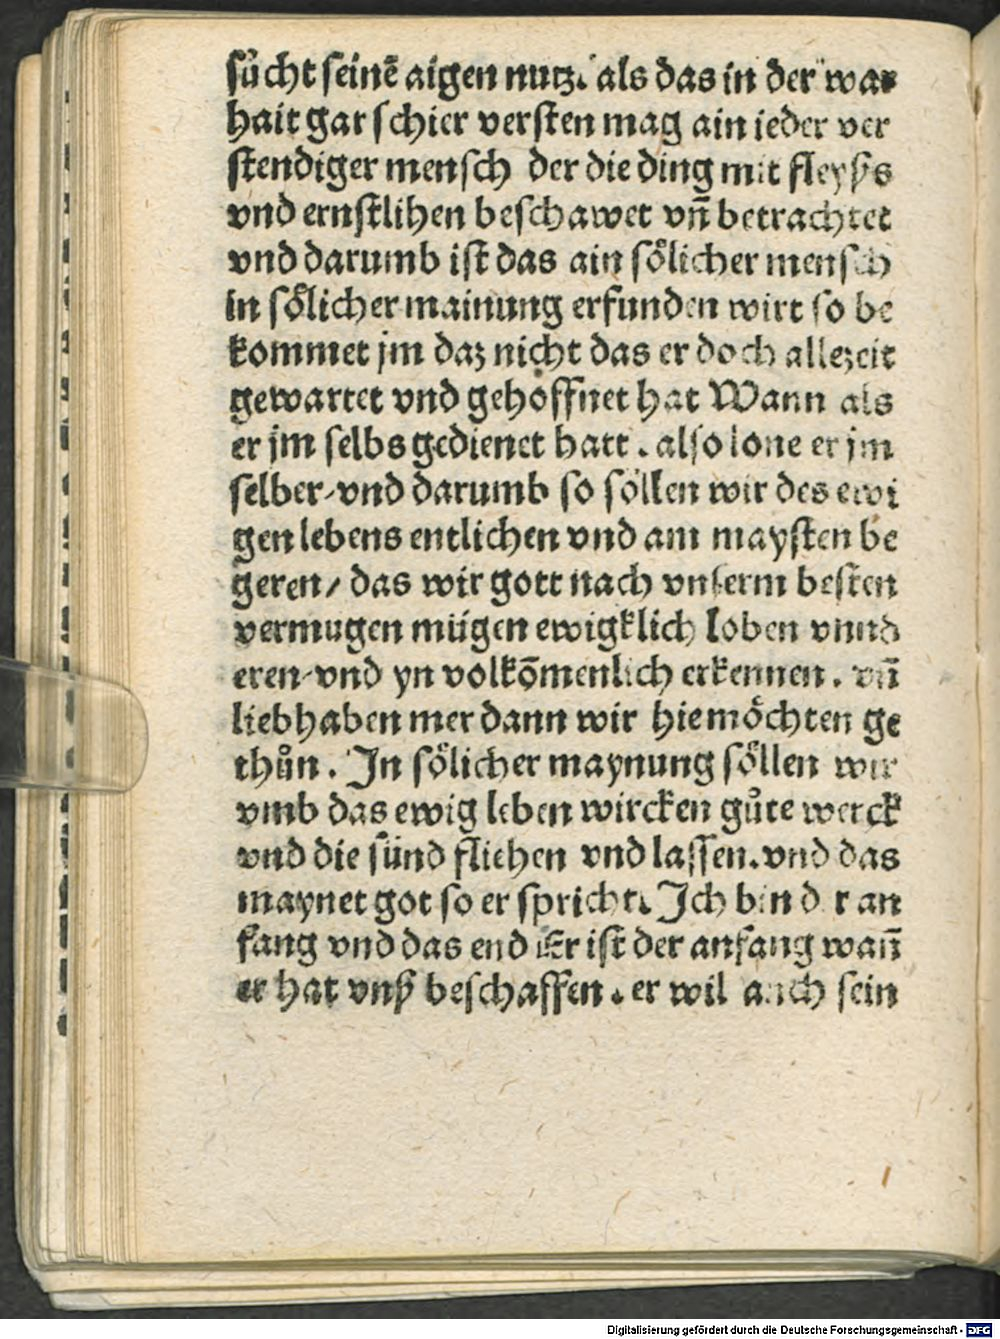 sůcht seinē aigen nutz. als das in der war
hait gar schier versten mag ain ieder ver
stendiger mensch der die ding mit fleyßs
vnd ernstlihen beschawet vn̄ betrachtet
vnd darumb ist das ain soͤlicher mensch
in soͤlicher mainung erfunden wirt so be
kommet jm daz nicht das er doch allezeit
gewartet vnd gehoffnet hat Wann als
er jm selbs gedienet hatt . also lone er jm
selber/vnd darumb so soͤllen wir des ewi
gen lebens entlichen vnd am maysten be
geren/ das wir gott nach vnserm besten
vermugen muͤgen ewigklich loben vnnd
eren/vnd yn volkōmenlich erkennen . vn̄
liebhaben mer dann wir hie moͤchten ge
thůn . In soͤlicher maynung soͤllen wir
vmb das ewig leben wircken gůte werck
vnd die sünd fliehen vnd lassen.vnd das
maynet got so er spricht. Ich bin der an
fang vnd das end Er ist der anfang wan̄
er hat vnß beschaffen . er wil auch sein
Digitalisierung gefördert durch die Deutsche Forschungsgemeinschaft - DFG